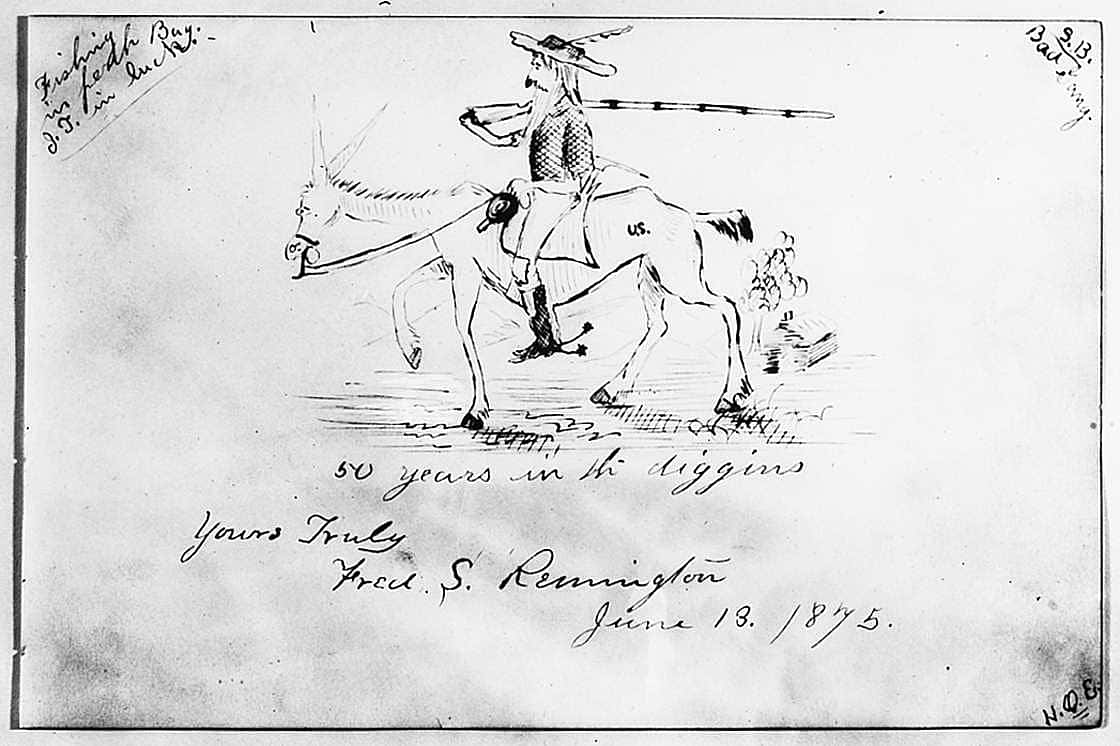 Fishing
in perch Bay.
J. T. in luck.
S. B.
Bad
U.S.
50 years in th diggins
Yours Truly
Fred. S. Remington
June 13. 1875.